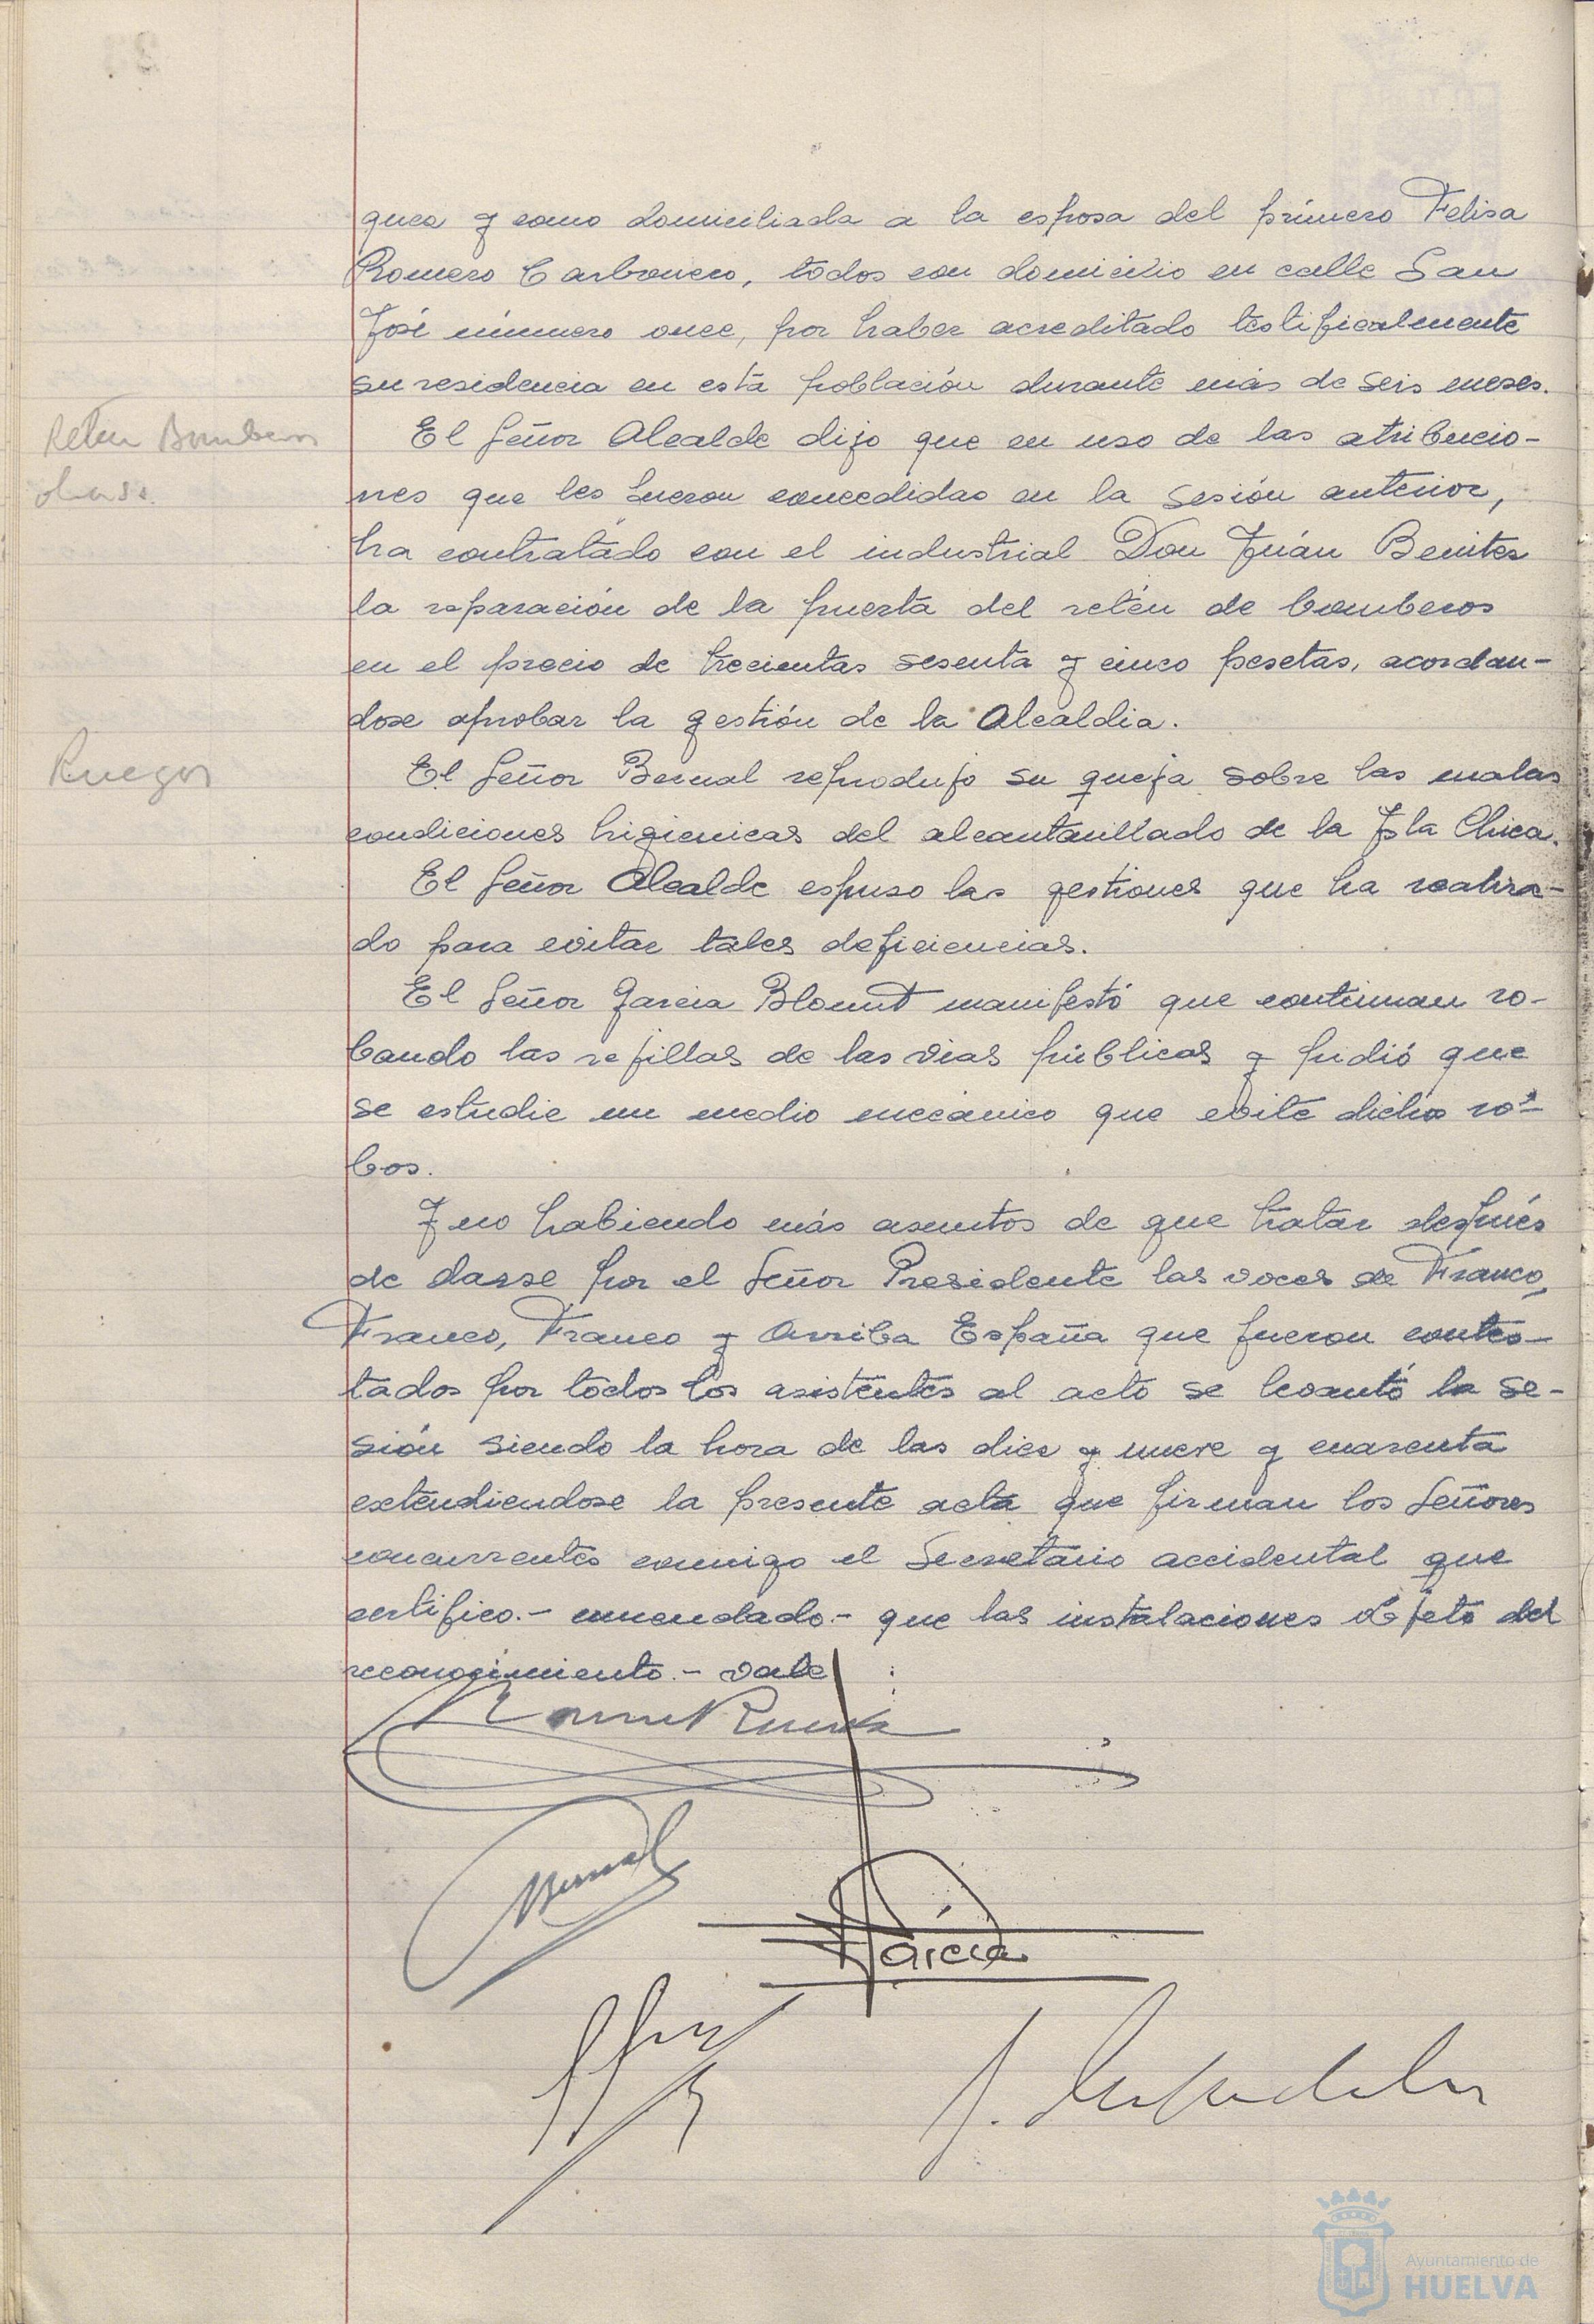 quez y como domiciliada a la esposa del primero Felisa
Romero Carbonero, todos con domicilio en calle San
José número once, por haber acreditado testificalmente
su residencia en esta población durante más de seis meses.
Reten Bomberos
obras.
El Señor Alcalde dijo que en uso de las atribucio-
nes que les fueron concedidas en la sesión anterior,
ha contratado con el industrial Don Juán Benitez
la reparación de la puerta del retén de bomberos
en el precio de trecientas sesenta y cinco pesetas, acordan-
dose aprobar la gestión de la Alcaldia.
Ruegos
El Señor Bernal reprodujo su queja sobre las malas
condiciones higienicas del alcantarillado de la Isla Chica.
El Señor Alcalde espuso las gestiones que ha realiza-
do para evitar tales deficiencias.
El Señor Garcia Blount manifestó que continuan ro-
bando las rejillas de las vias públicas y pidió que
se estudie un medio mecánico que evite dichos ro-
bos.
Y no habiendo más asuntos de que tratar después
de darse por el Señor Presidente las voces de Franco,
Franco, Franco y Arriba España que fueron contes-
tados por todos los asistentes al acto se levantó la se-
sión siendo la hora de las diez y nueve y cuarenta
extendiendose la presente acta que firman los Señores
concurrentes conmigo el Secretario accidental que
certifico.- enmendado.- que las instalaciones objeto del
reconocimiento.- vale
Bernal
García
Ayuntamiento de
HUELVA